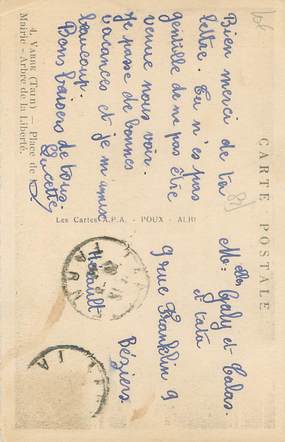 106
Bien merci de ta
lettre. Tu n'es pas
gentille de ne pas être
venue nous voir.
Je passe de bonnes
vacances et je m'amuse
beaucoup.
Bons baisers de tous.
4. VABRE (TARN) — Place de
Mairie - Arbre de la Liberté.
Les Cartes A.P.A. - POUX - ALBI
CARTE POSTALE
Melles Galy et Calas.
et tata
9 rue Franklin 9
Béziers
Hérault
TARN